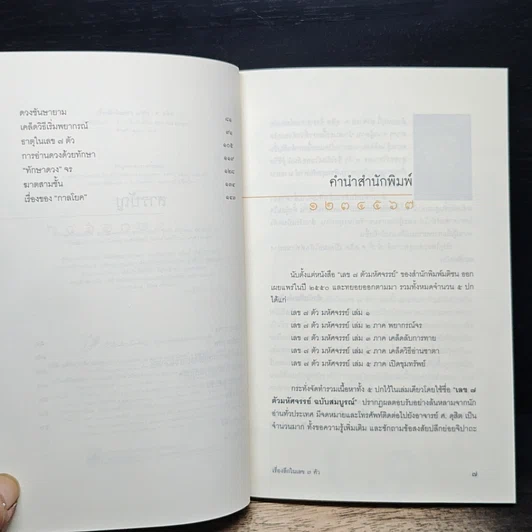 ดวงชันษายาม
เคล็ดวิธีเริ่มพยากรณ์
ธาตุในเลข ๗ ตัว
การอ่านดวงด้วยทักษา
"ทักษาดวง" จร
ฆาตสามชั้น
เรื่องของ "กาลโยค"
คำนำสำนักพิมพ์
๑ ๒ ๓ ๔ ๕ ๖ ๗
นับตั้งแต่หนังสือ "เลข ๗ ตัวมหัศจรรย์" ของสำนักพิมพ์มติชน ออก
เผยแพร่ในปี ๒๕๕๐ และทยอยออกตามมา รวมทั้งหมดจำนวน ๕ ปก
ได้แก่
เลข ๗ ตัว มหัศจรรย์ เล่ม ๑
เลข ๗ ตัว มหัศจรรย์ เล่ม ๒ ภาค พยากรณ์จร
เลข ๗ ตัว มหัศจรรย์ เล่ม ๓ ภาค เคล็ดลับการทาย
เลข ๗ ตัว มหัศจรรย์ เล่ม ๔ ภาค เคล็ดวิธีอ่านชะตา
เลข ๗ ตัว มหัศจรรย์ เล่ม ๕ ภาค เปิดขุมทรัพย์
กระทั่งจัดทำรวมเนื้อหาทั้ง ๕ ปกไว้ในเล่มเดียวโดยใช้ชื่อ "เลข ๗
ตัวมหัศจรรย์ ฉบับสมบูรณ์" ปรากฏผลตอบรับอย่างล้นหลามจากนัก
อ่านทั่วประเทศ มีจดหมายและโทรศัพท์ติดต่อไปยังอาจารย์ ศ. ดุสิต เป็น
จำนวนมาก ทั้งขอความรู้เพิ่มเติม และซักถามข้อสงสัยปลีกย่อยจิปาถะ
เรื่องลึกในเลข ๗ ตัว
๗